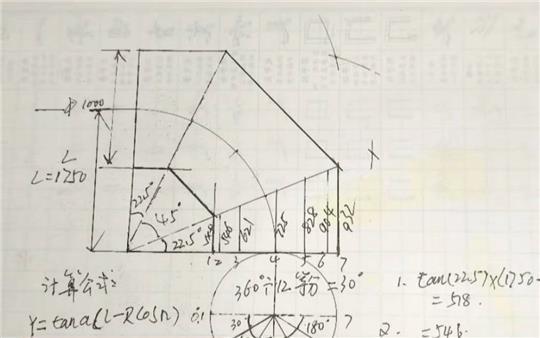 φ1000
L
L=1750
22.5°
45°
22.5°
546
621
725
828
904
932
1 2 3 4 5 6 7
计算公式:
360°÷12等份=30°
1. tan(22.5)×(1750-
=518.
Y=tanα(L-R cos n)
0.1
30°
180°
7
2. =546.